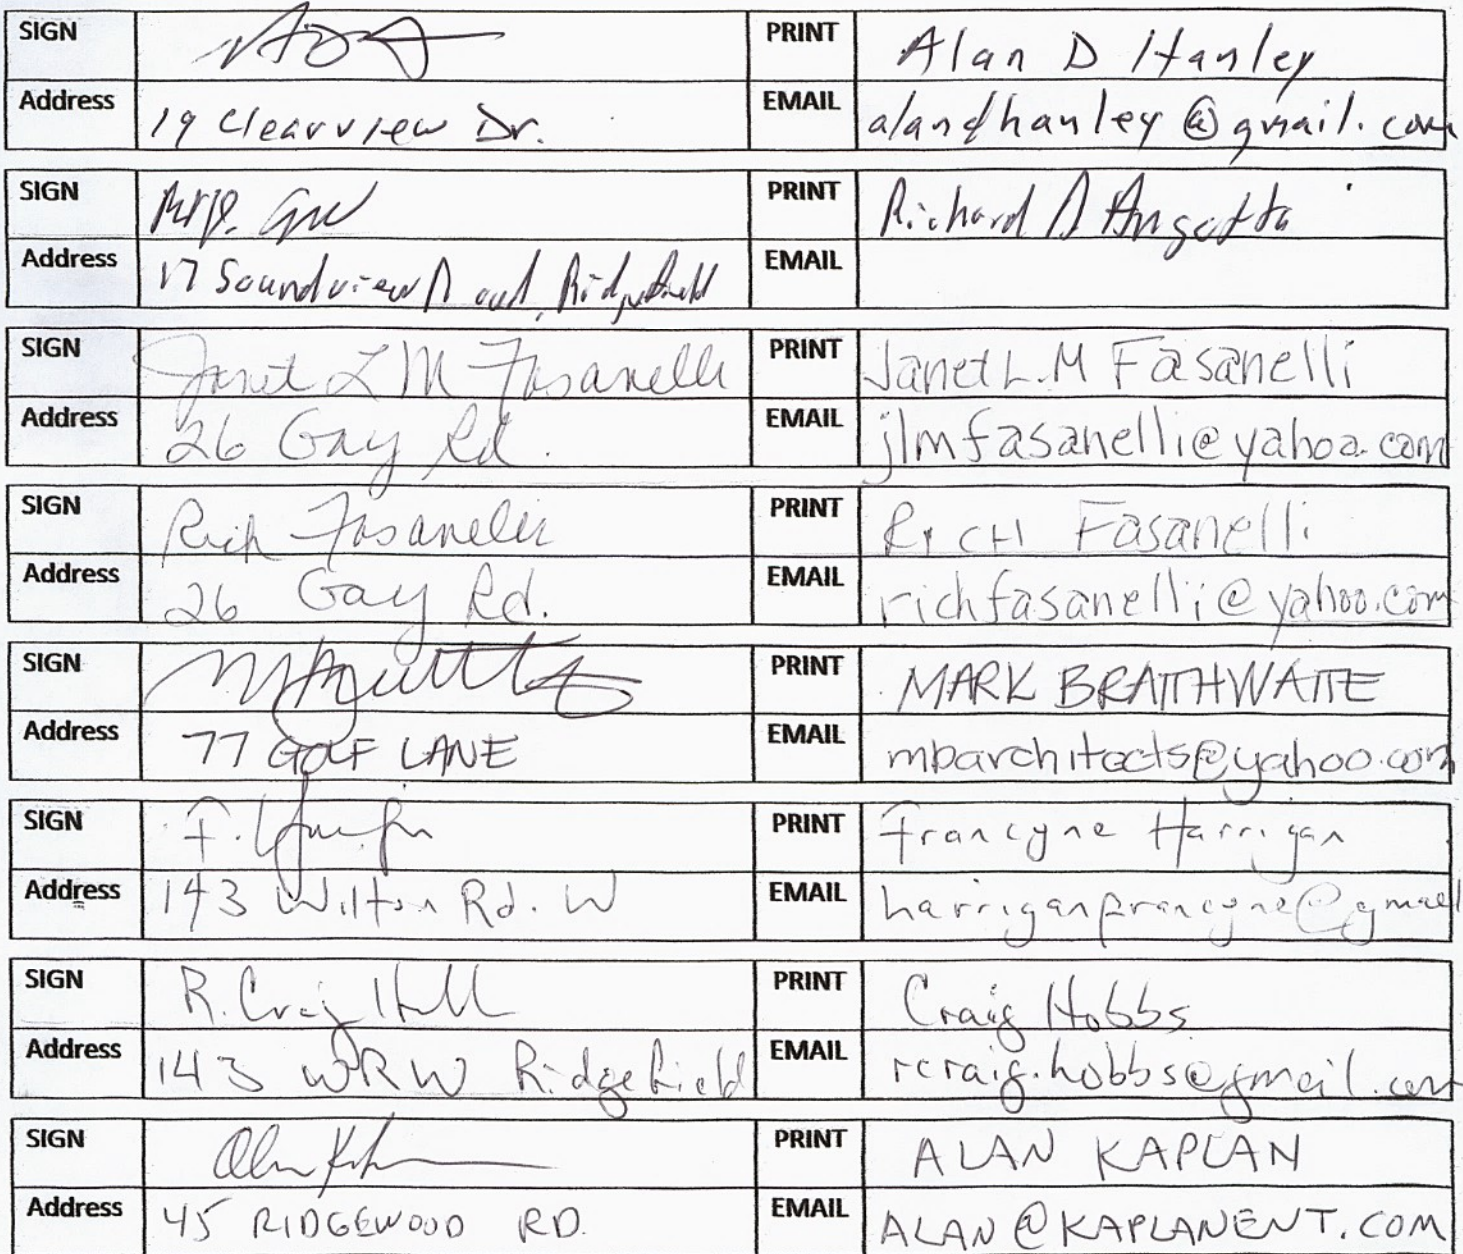 SIGN PRINT Alan D Hanley
Address 19 Clearview Dr. EMAIL alandhanley@gmail.com
SIGN PRINT Richard A Angotta
Address 17 Soundview Road, Ridgefield EMAIL
SIGN Janet L M Fasanelli PRINT Janet L. M Fasanelli
Address 26 Gay Rd. EMAIL jlmfasanelli@yahoo.com
SIGN Rich Fasanelli PRINT RICH Fasanelli
Address 26 Gay Rd. EMAIL richfasanelli@yahoo.com
SIGN PRINT MARK BRAITHWAITE
Address 77 GOLF LANE EMAIL mbarchitects@yahoo.com
SIGN PRINT Francyne Harrigan
Address 143 Wilton Rd. W EMAIL harriganfrancyne@gmail
SIGN R. Craig PRINT Craig Hobbs
Address 143 WRW Ridgefield EMAIL rcraig.hobbs@gmail.com
SIGN PRINT ALAN KAPLAN
Address 45 RIDGEWOOD RD. EMAIL ALAN@KAPLANENT.COM